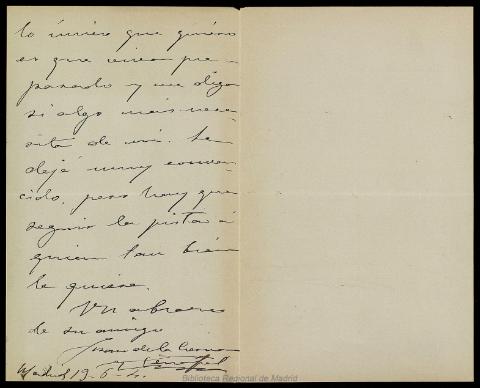 lo único que quiero
es que viva pre-
parado y me diga
si algo más nece-
sita de mi. Le
dejé muy conven-
cido, pero hay que
seguir la pista á
quien tan bién
le quiere.
Un abrazo
de su amigo
Juan de la
Madrid 19-6-
Biblioteca Regional de Madrid